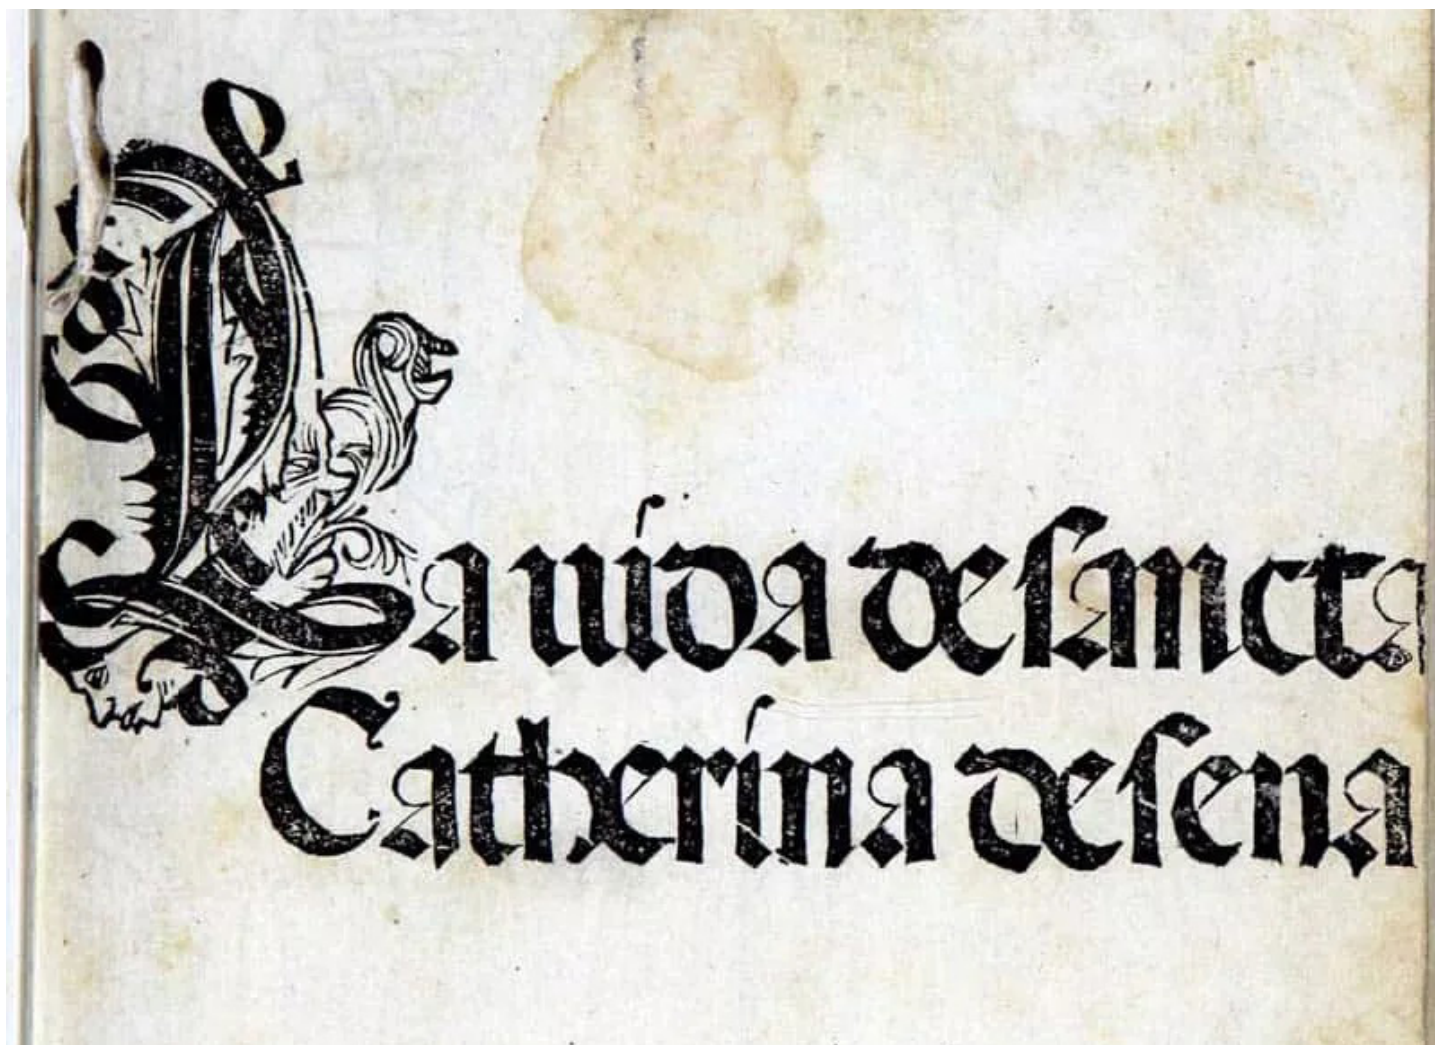 La uida de sancta
Catherina de sena